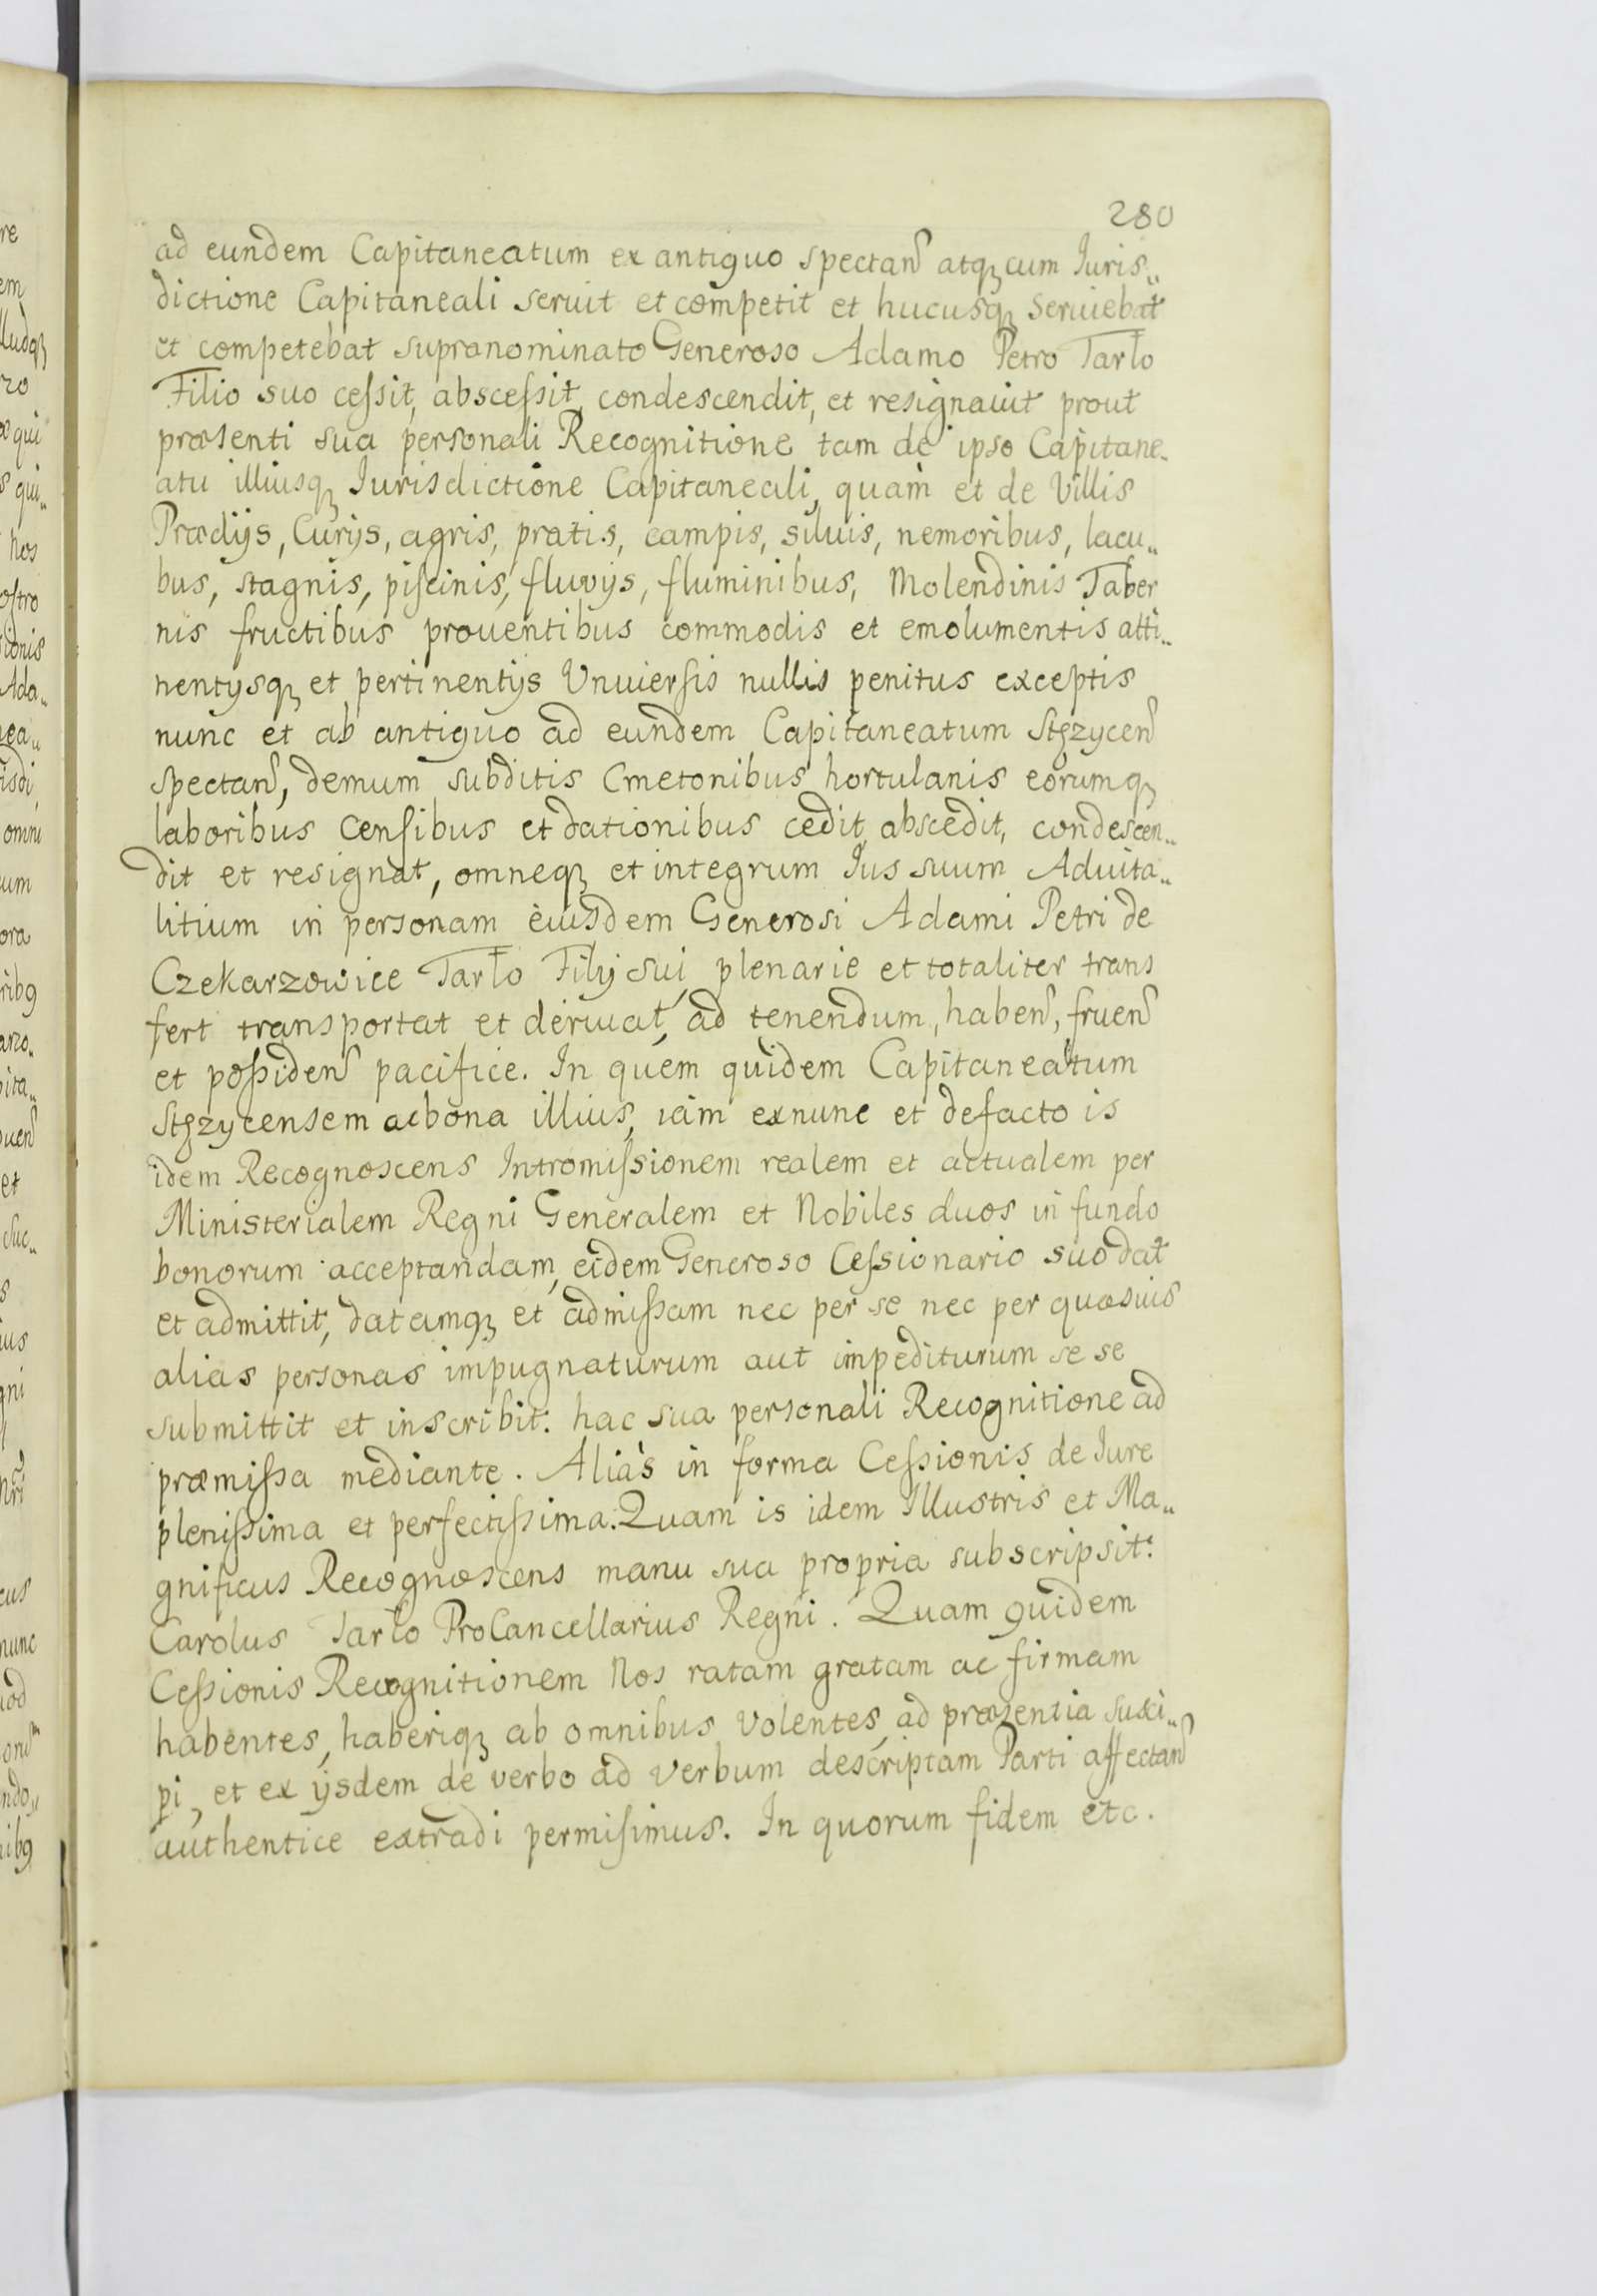 280
ad eundem Capitaneatum ex antiquo spectan̄ atqꝫ cum Iuris„
dictione Capitaneali seruit et competit et hucusqꝫ seruiebat
et competebat supranominato Generoso Adamo Petro Tarło
Filio suo ceſsit, absceſsit, condescendit, et resignauit prout
præsenti sua personali Recognitione tam de ipso Capitane„
atu illiusqꝫ Iurisdictione Capitaneali, quam et de Villis
Prædijs, Curijs, agris, pratis, campis, siluis, nemoribus, lacu„
bus, stagnis, piſcinis, fluvijs, fluminibus, Molendinis Taber
nis fructibus prouentibus commodis et emolumentis atti„
nentijsqꝫ et pertinentijs Vniuerſis nullis penitus exceptis
nunc et ab antiquo ad eundem Capitaneatum Stęzycen̄
spectan̄, demum subditis Cmetonibus hortulanis eorumqꝫ
laboribus Cenſibus et dationibus cedit, abscedit, condescen„
dit et resignat, omneqꝫ et integrum Ius suum Aduita„
litium in personam eiusdem Generosi Adami Petri de
Czekarzowice Tarło Filij sui, plenarie et totaliter trans
fert transportat et deriuat, ad tenendum, haben̄, fruen̄
et poſsiden̄ pacifice. In quem quidem Capitaneatum
Stęzycensem ac bona illius, iam exnunc et defacto is
idem Recognoscens Intromiſsionem realem et actualem per
Ministerialem Regni Generalem et Nobiles duos in fundo
bonorum acceptandam, eidem Generoso Ceſsionario suo dat
et admittit, datamqꝫ et admiſsam nec per se nec per quasuis
alias personas impugnaturum aut impediturum se se
submittit et inscribit: hac sua personali Recognitione ad
præmiſsa mediante. Aliàs in forma Ceſsionis de Iure
pleniſsima et perfectiſsima. Quam is idem Illustris et Ma„
gnificus Recognoscens manu sua propria subscripsit:
Carolus Tarło ProCancellarius Regni. Quam quidem
Ceſsionis Recognitionem Nos ratam gratam ac firmam
habentes, haberiqꝫ ab omnibus volentes, ad præsentia susci„
pi, et ex ijsdem de verbo ad verbum descriptam Parti affectan̄
authentice extradi permiſimus. In quorum fidem etc.